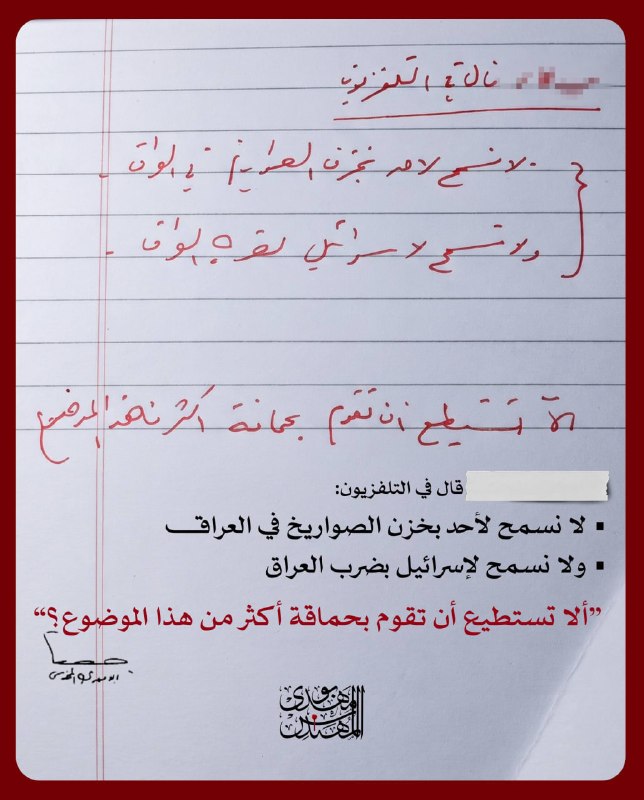 قال في التلفزيون
لا نسمح لاحد بخزن الصواريخ في العراق .
ولا نسمح لاسرائيل بضرب العراق .
الا تستطيع ان تقوم بحماقة اكثر من هذا الموضوع
قال في التلفزيون:
▪ لا نسمح لأحد بخزن الصواريخ في العراق
▪ ولا نسمح لإسرائيل بضرب العراق
”ألا تستطيع أن تقوم بحماقة أكثر من هذا الموضوع؟“
ابو مهدي المهندس
أبو مهدي
المهندس